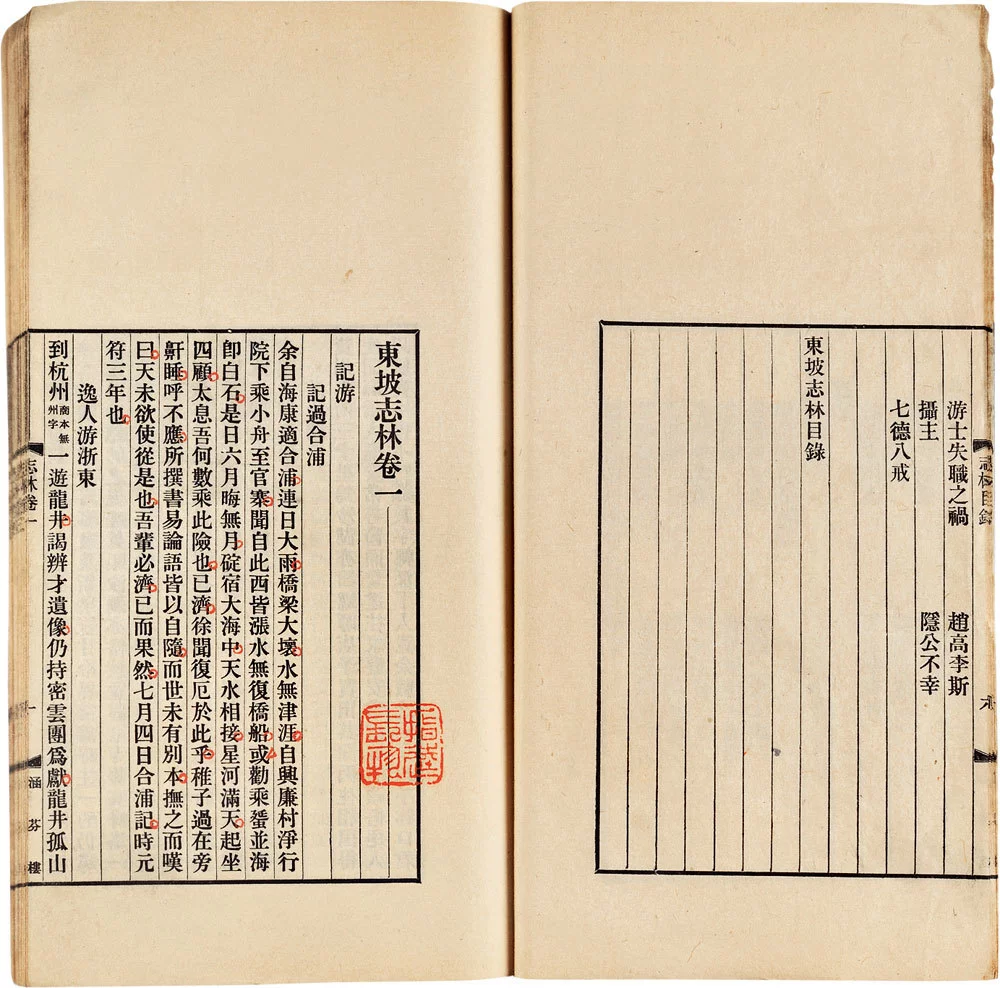 志林目錄
游士失職之禍　趙高李斯
攝主　隱公不幸
七德八戒
東坡志林目錄
東坡志林卷一
記游
記過合浦
余自海康適合浦連日大雨橋梁大壞水無津涯自興廉村淨行
院下乘小舟至官寨聞自此西皆漲水無復橋船或勸乘蜑並海
卽白石是日六月晦無月碇宿大海中天水相接星河滿天起坐
四顧太息吾何數乘此險也已濟徐聞復厄於此乎稚子過在旁
鼾睡呼不應所撰書易論語皆以自隨而世未有別本撫之而嘆
曰天未欲使從是也吾輩必濟已而果然七月四日合浦記時元
符三年也
逸人游浙東
到杭州南本無州字一遊龍井謁辨才遺像仍持密雲團爲獻龍井孤山
志林卷一　一　涵芬樓